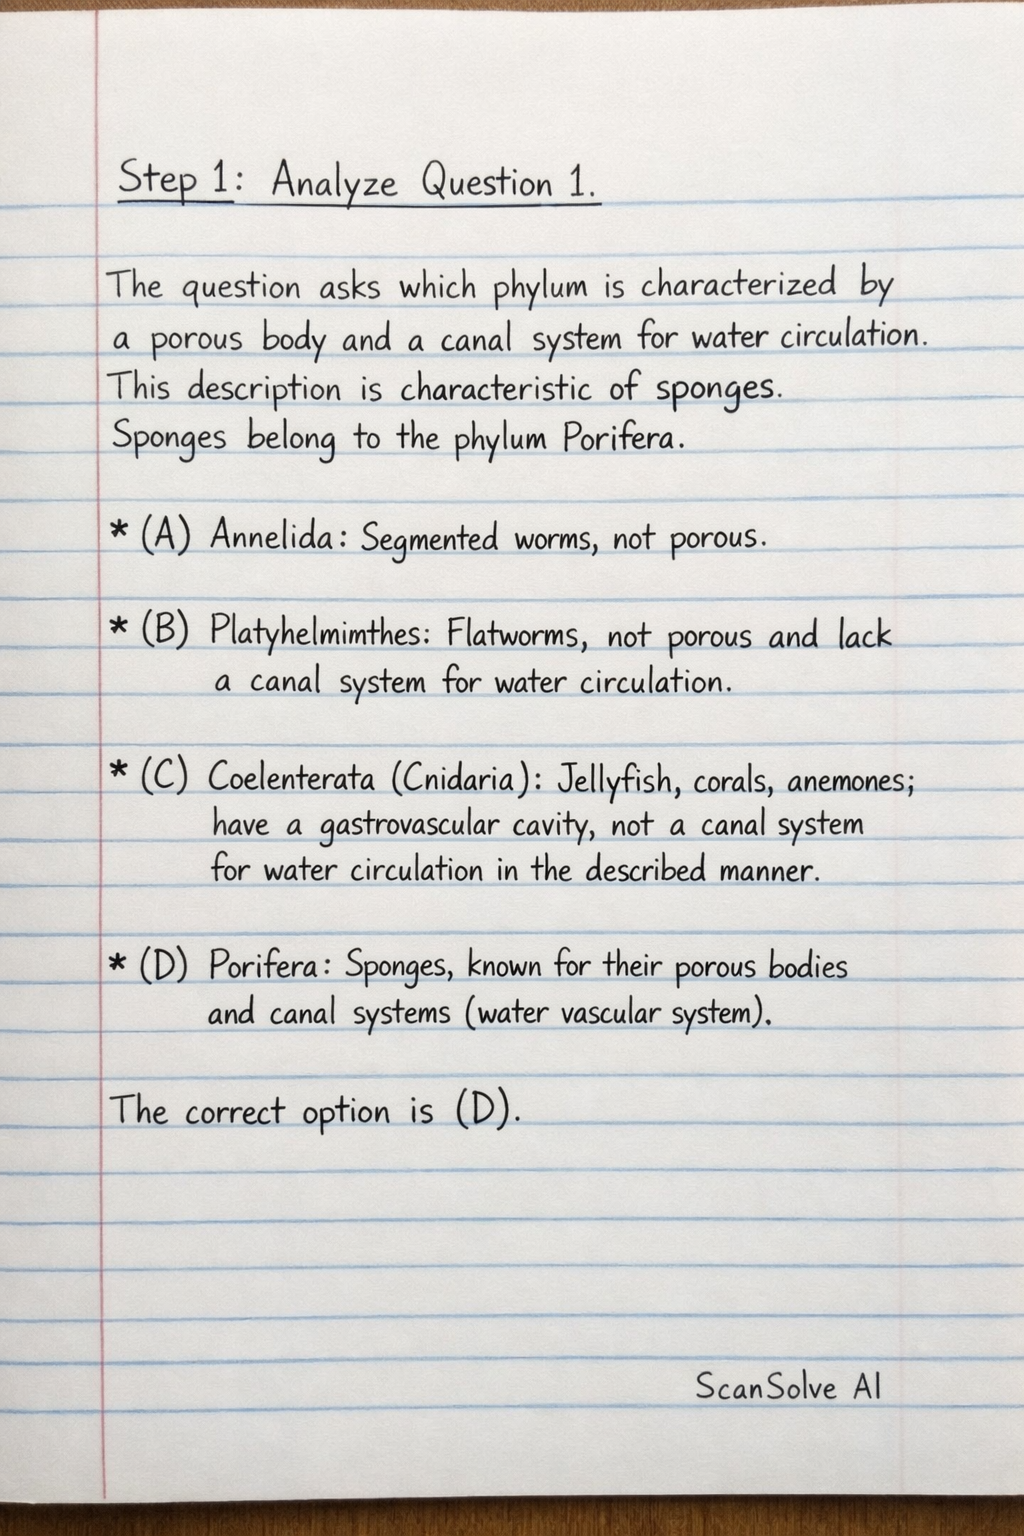 Step 1: Analyze Question 1.
The question asks which phylum is characterized by
a porous body and a canal system for water circulation.
This description is characteristic of sponges.
Sponges belong to the phylum Porifera.
* (A) Annelida: Segmented worms, not porous.
* (B) Platyhelmimthes: Flatworms, not porous and lack
a canal system for water circulation.
* (C) Coelenterata (Cnidaria): Jellyfish, corals, anemones;
have a gastrovascular cavity, not a canal system
for water circulation in the described manner.
* (D) Porifera: Sponges, known for their porous bodies
and canal systems (water vascular system).
The correct option is (D).
ScanSolve AI